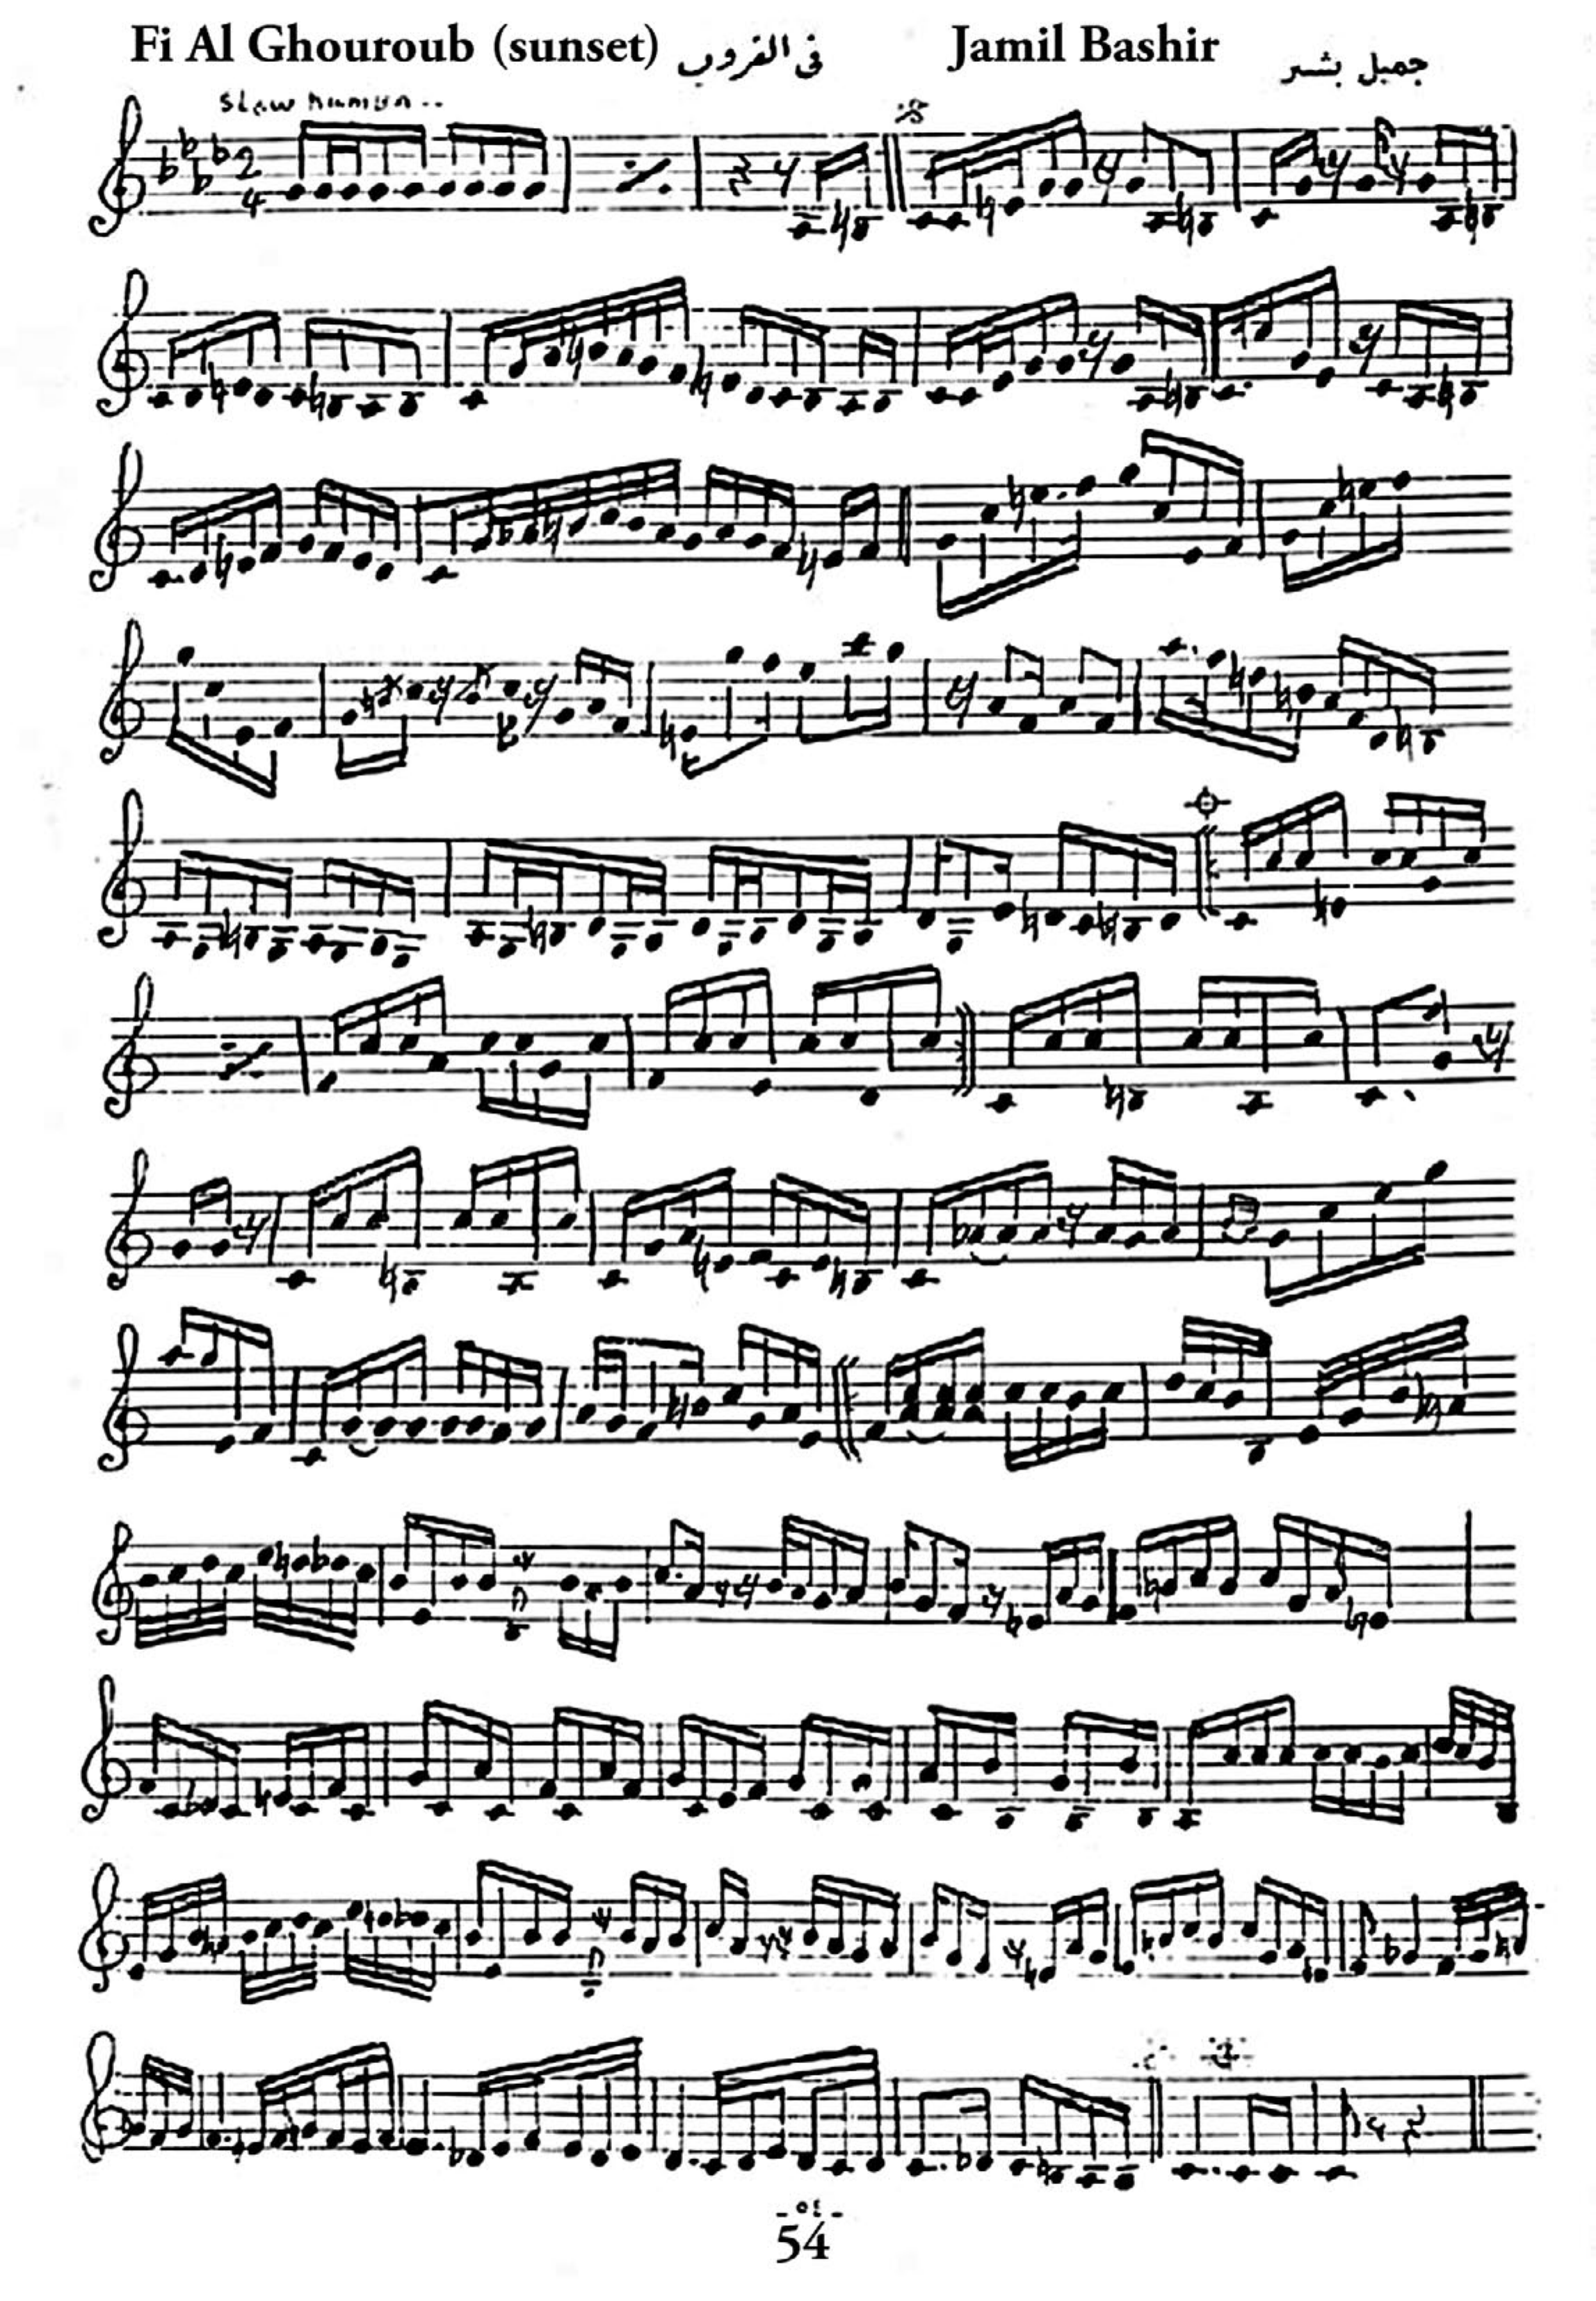 Fi Al Ghouroub (sunset) في الغروب Jamil Bashir جميل بشير
slow
2
4
- ٥٤ -
54